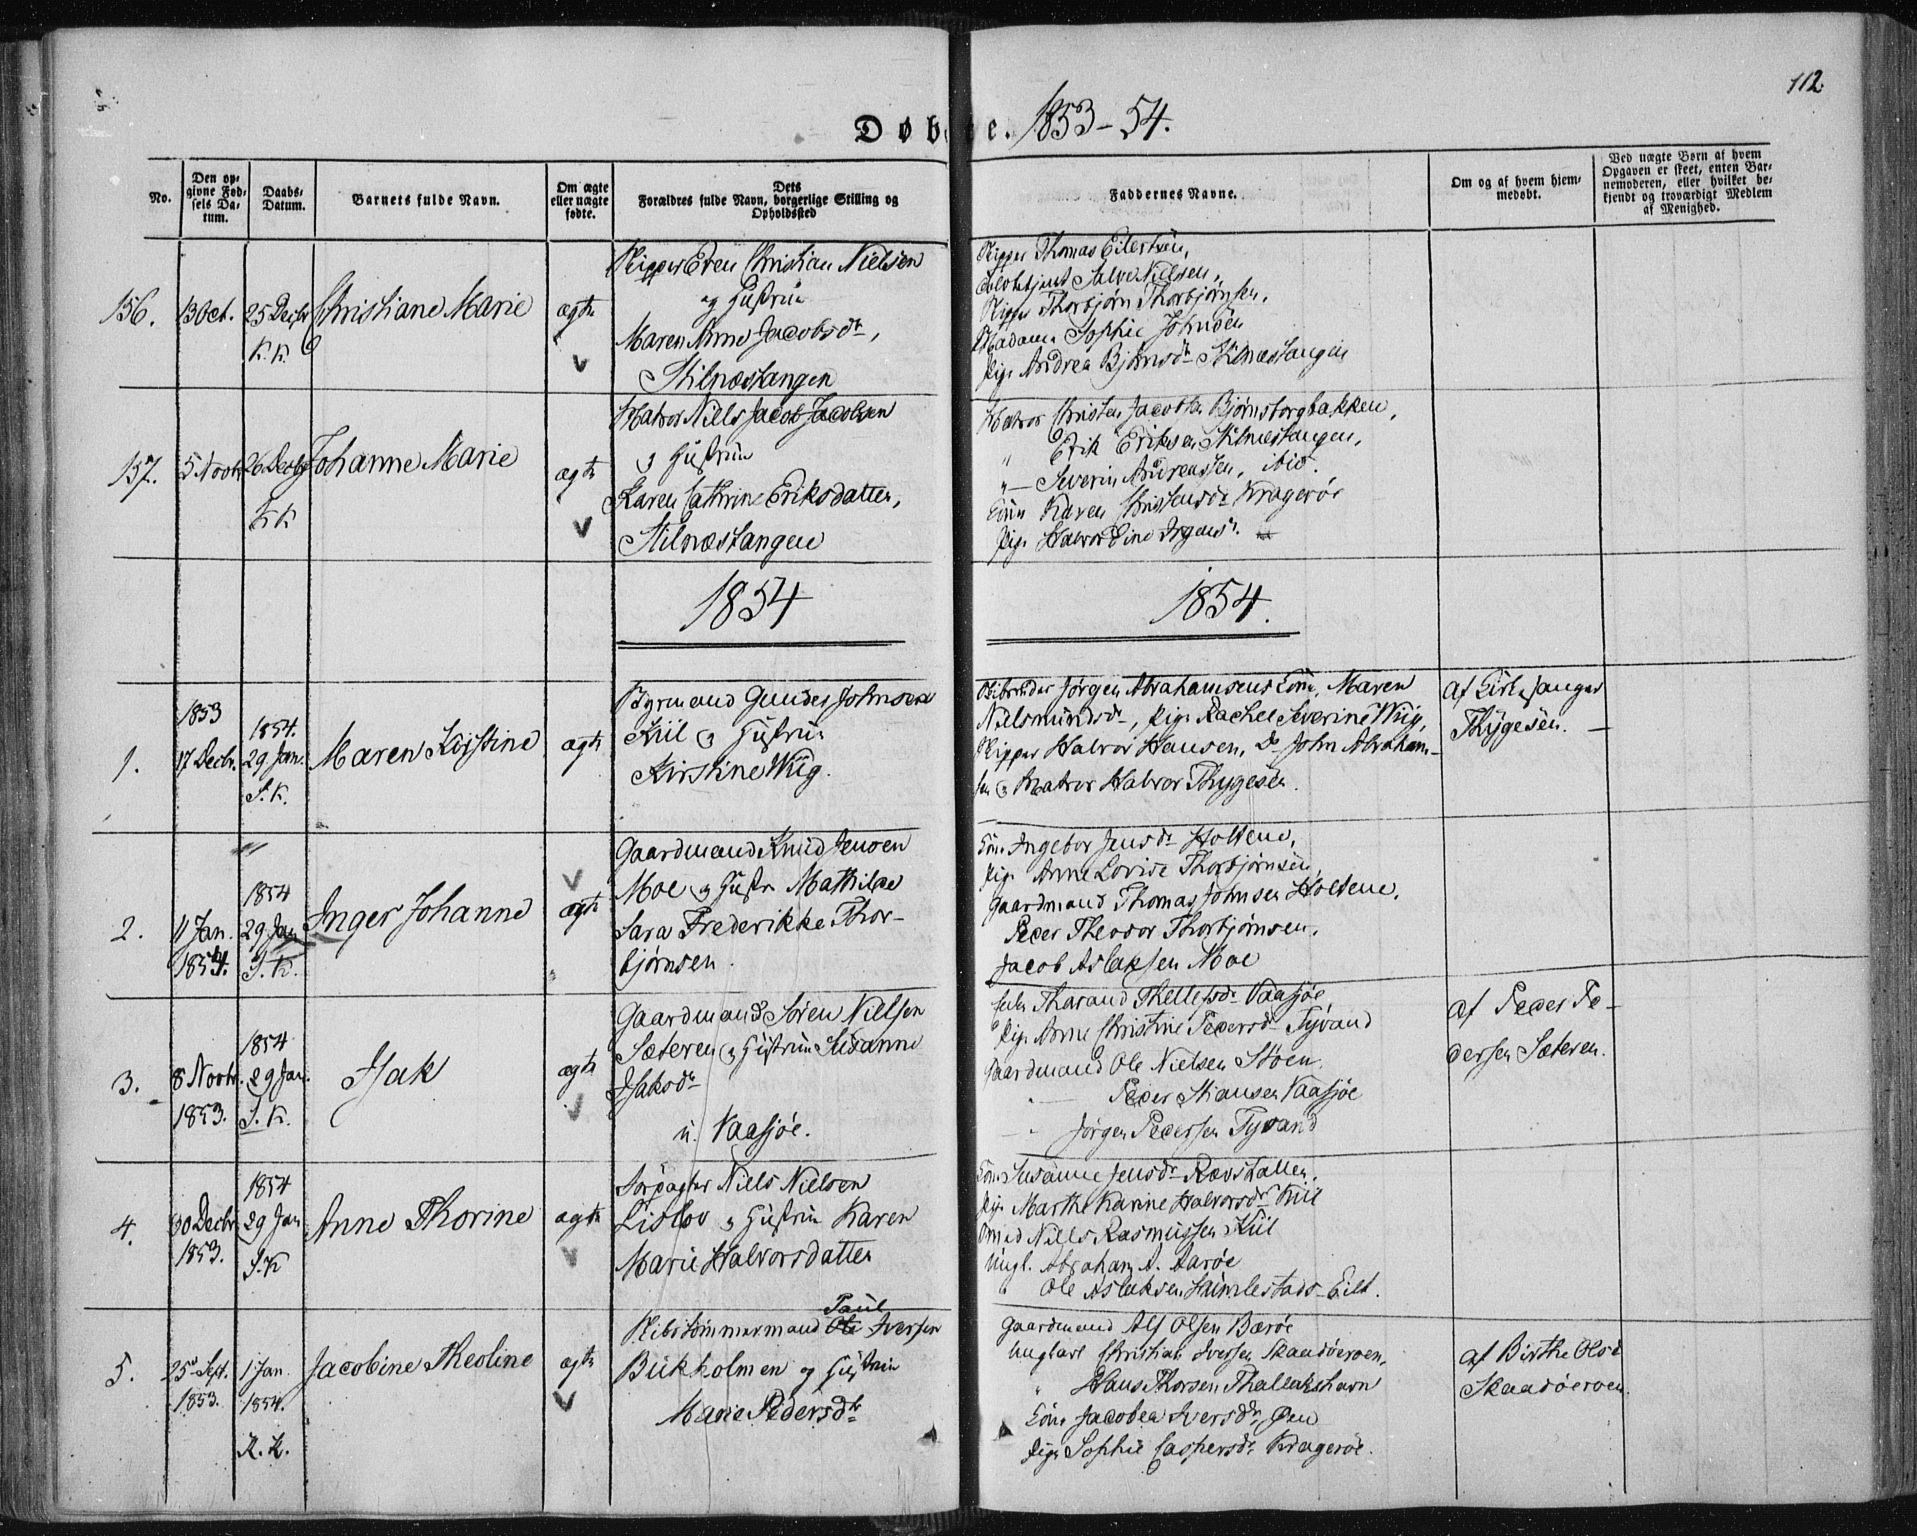 112
Døbte. 1853-54.
No.
Den op-
givne Fød-
sels Da-
tum.
Daabs-
Datum.
Barnets fulde Navn.
Om ægte
eller nægte
fødte.
Dets
Forældres fulde Navn, borgerlige Stilling og
Opholdssted
Faddernes Navne.
Om og af hvem hjem-
medøbt.
Ved nægte Børn af hvem
Opgaven er skeet, enten Bar-
nemoderen, eller hvilket be-
kjendt og troværdigt Medlem
af Menighed.
156.
13 Oct.
25 Decbr
K. K.
Christiane Marie
ægte
Skipper Even Christian Nielsen
og Hustru
Maren Anne Jacobsdr,
Stilnæstangen
Skipper Thomas Eilertsen,
Salve Nielsen,
Skipper Thorbjørn Thorbjørnsen,
Madame Sophie Johnsen
Pige Andrea Bjørnsdr Stilnæstangen
157.
5 Novbr
26 Decbr
K K
Johanne Marie
ægte
Matros Niels Jacob Jacobsen
og Hustru
Karen Cathrine Eriksdatter,
Stilnæstangen
Matros Christen Jacobsen Bjørnsborgbakken,
" Erik Eriksen Stilnæstangen,
" — Severin Andreassen, ibid.
Kone Karen Christensdr Kragerøe
Pige Halvordine
1854
1854.
1.
1853
17 Decbr.
1854.
29 Jan.
S. K.
Maren Kirstine
ægte
Byrmand Gunder Johnsen
Kiil og Hustru
Kirstine Wiig.
Skibsreder Jørgen Abrahamsens Kone, Maren
Nielsmundsdr, Pige Rachel Severine Wiig,
Skipper Halvor Hansen, do John Abraham-
sen og Matros Halvor Thygesen.
af Kirkesanger
Thygesen. —
2.
11 Jan.
1854.
1854
29 Jan
S. K.
Inger Johanne
ægte
Gaardmand Knud Jensen
Moe og Hustru Mathilde
Sara Frederikke Thor-
bjørnsen.
Kone Ingebor Jensdr Holtene,
Pige Anne Lovise Thorbjørnsen,
Gaardmand Thomas Johnsen Holtene,
Peder Theodor Thorbjørnsen,
Jacob Aslaksen Moe
3.
8 Novbr.
1853.
1854
29 Jan.
S. K.
Isak
ægte
Gaardmand Søren Nielsen
Sæteren og Hustru Susanne
Isaksdr
u. Vaasjøe.
Tharand Thellefsdr Vaasjøe,
Pige Anne Christine Pedersdr Tyvand
Gaardmand Ole Nielsen Stoen,
" — Peder Stiansen Vaasjøe
— " Jørgen Pedersen Tyvand
af Peder Pe-
dersen Sæteren.
4.
30 Decbr
1853.
1854
29 Jan
S. K
Anne Thorine
ægte
Forpagter Niels Nielsen
Lislov og Hustru Karen
Marie Halvorsdatter
Kone Susanne Jensdr Rævstallen,
Pige Marthe Karine Halvorsdr Kiil
Smed Niels Rasmussen Kiil
Ungk. Abraham A. Aarøe
Ole Aslaksen Eilt.
5.
25de Sept.
1853.
1 Jan
1854.
K. K.
Jacobine Theoline
ægte
Skibstømmermand Paul Iversen
Birkholmen og Hustru
Marie Pedersdr
Gaardmand Alf Olsen Bærøe
Ungkarl Christian Iversen Skaadøeroen,
" Hans Thorsen Thallakshavn
Kone Jacobea Iversdr Øen
Pige Sophie Caspersdr Kragerøe.
af Birthe Olsd
Skaadøeroen.